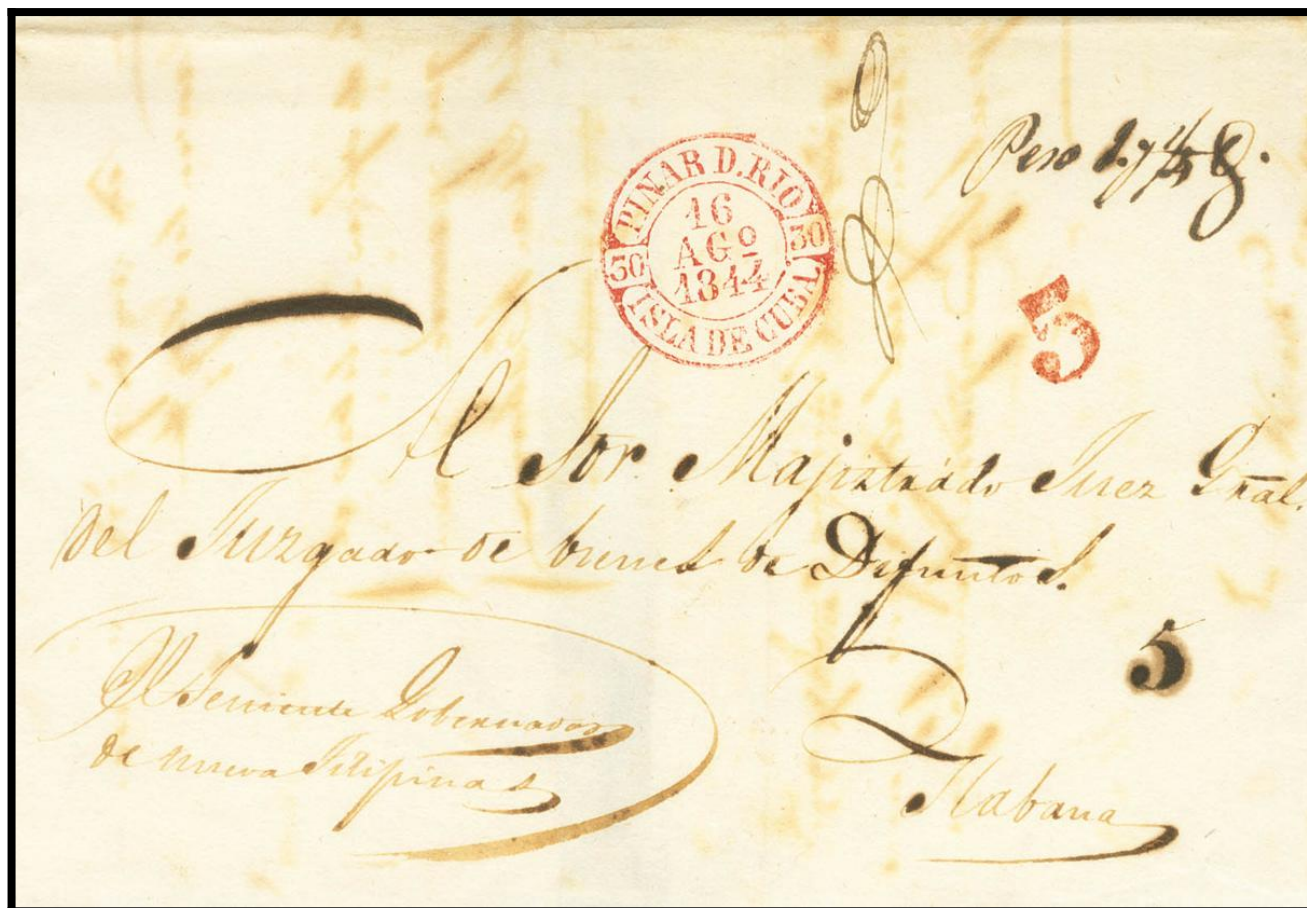 Peso 1. y 1/4
PINAR D. RIO
30 30
16
AGO
1844
ISLA DE CUBA
5
Al Sor. Majistrado Juez Gñal.
del Juzgado de bienes de Difuntos.
5
El Teniente Gobernador
de nueva Filipina
Habana